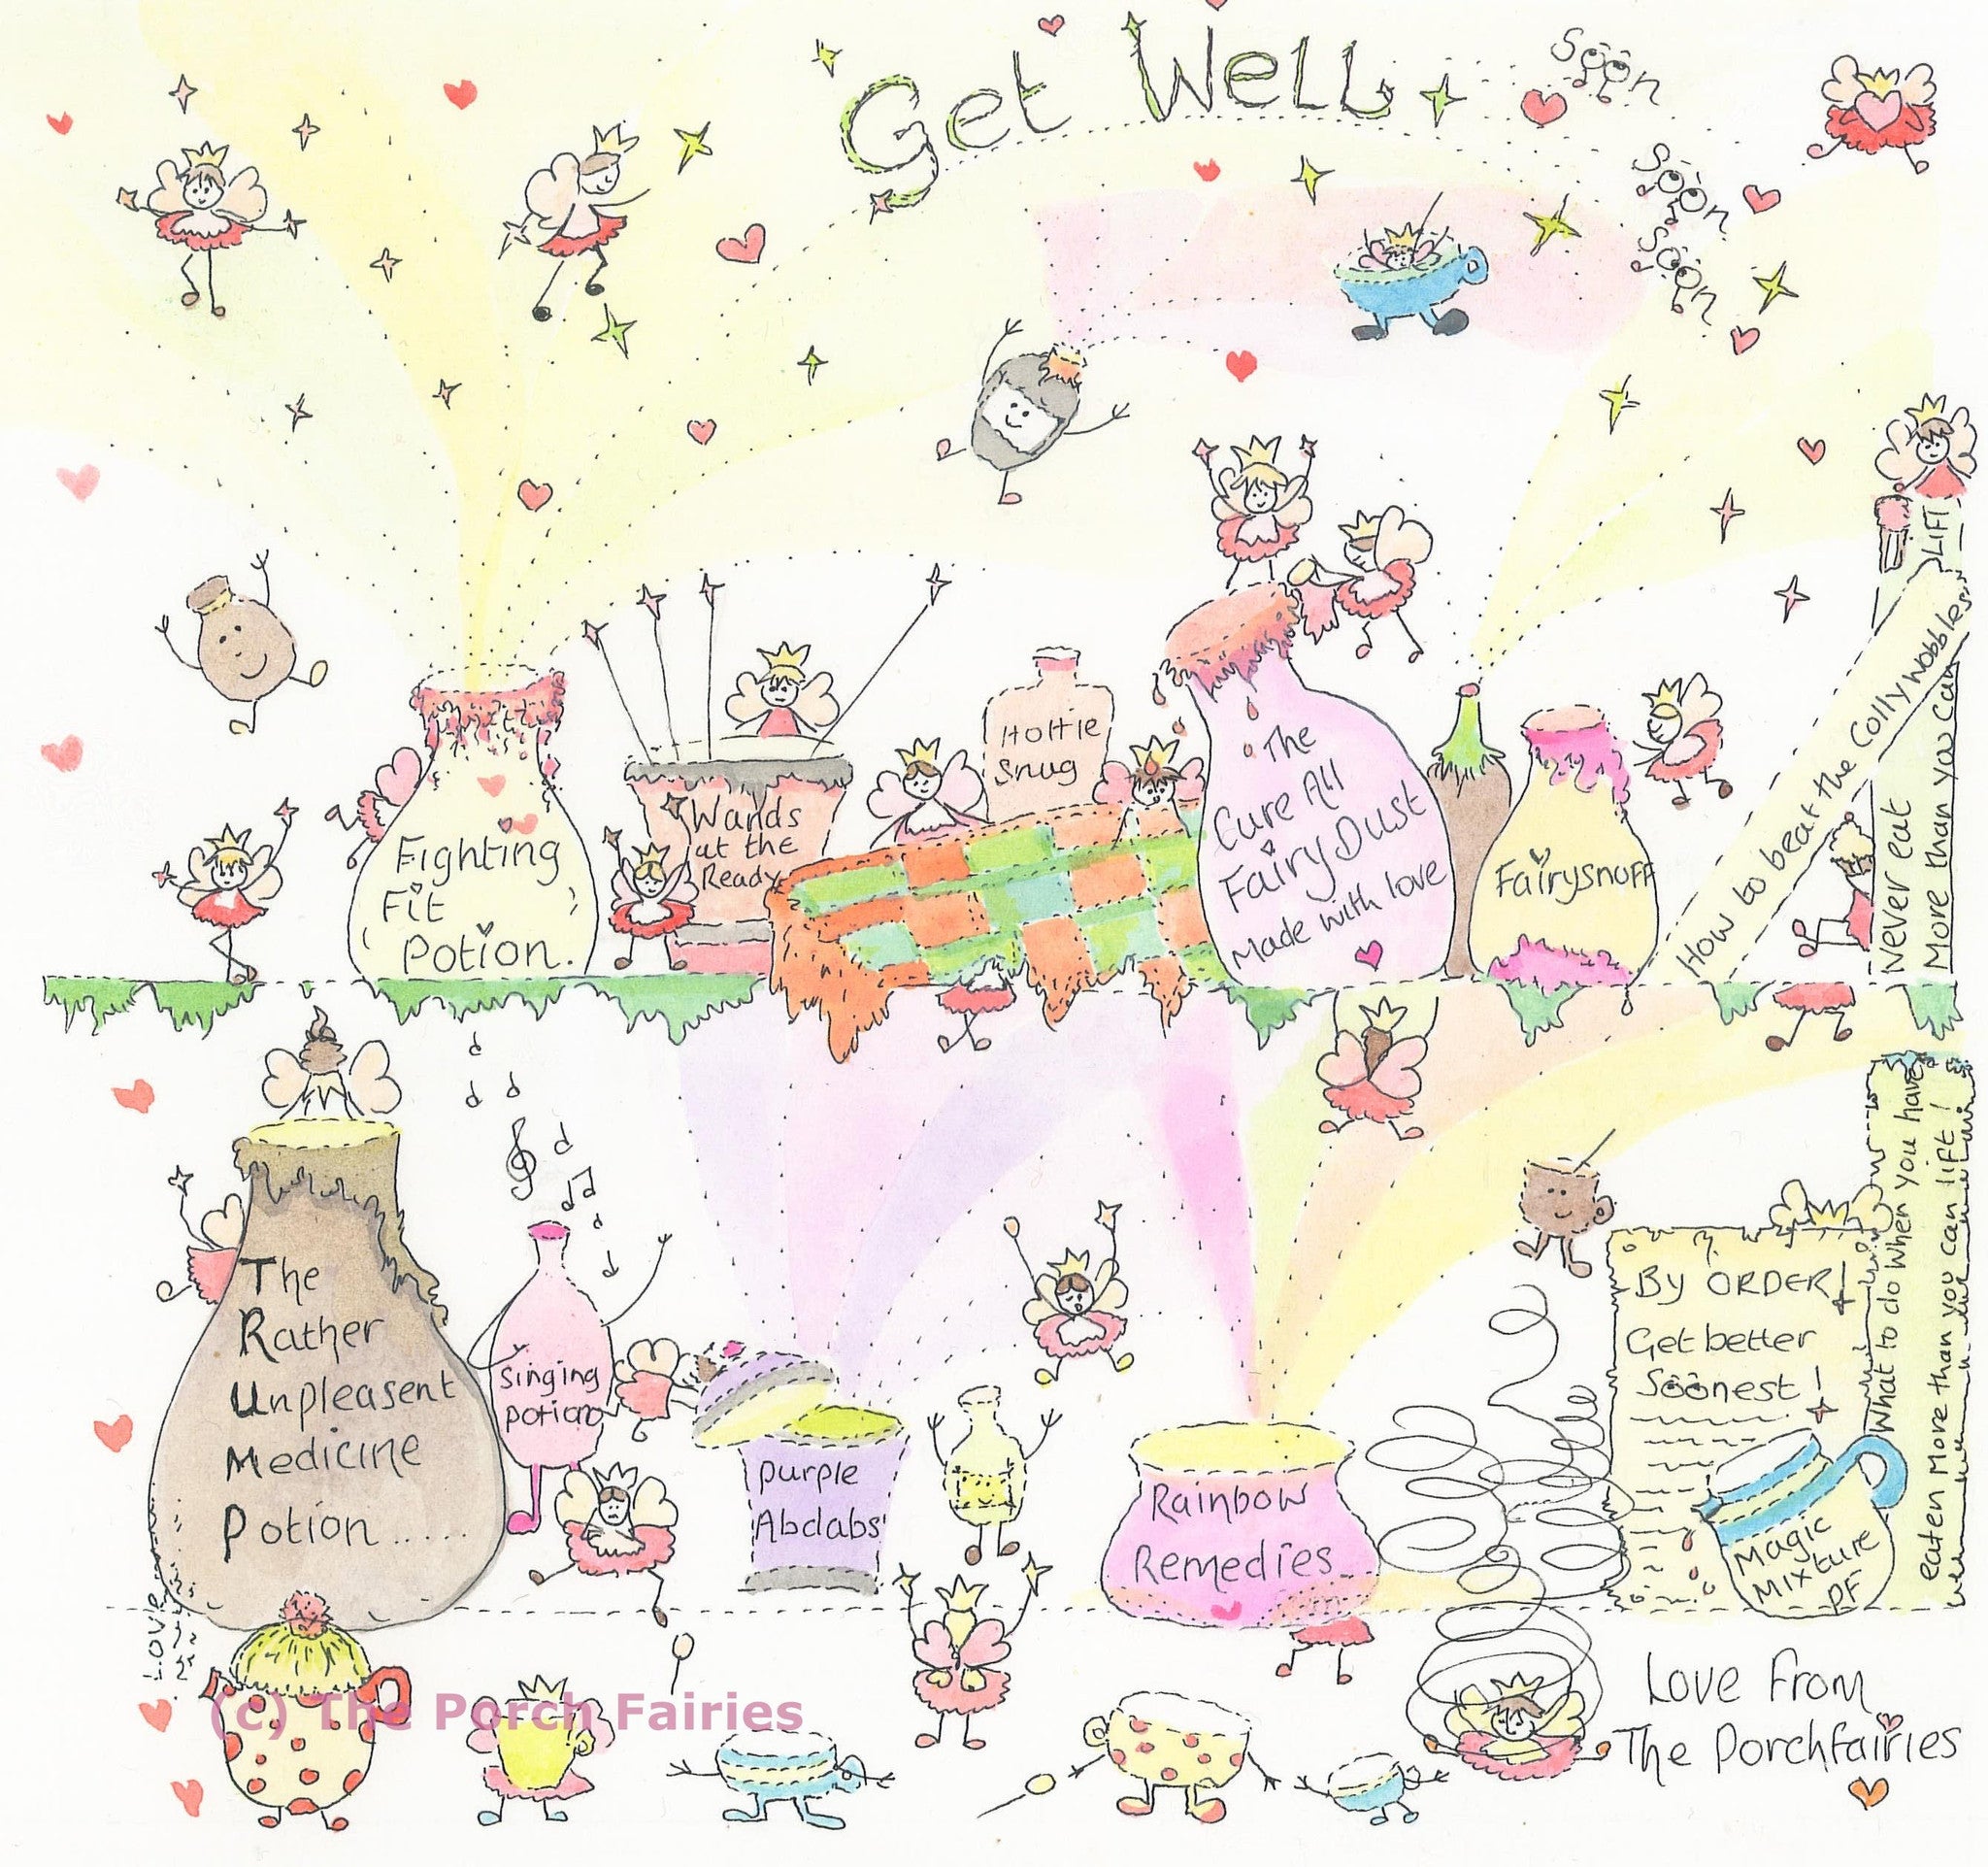 Get Well
Soon
Soon
Soon
Fighting
Fit
Potion.
Wands
at the
Ready
Hottie
Snug
The
Cure All
Fairy Dust
Made with love
Fairysnuff
How to beat the Collywobbles
Never eat
More than you can
LIFT
The
Rather
Unpleasent
Medicine
Potion.....
Singing
potion
Purple
Abdabs'
Rainbow
Remedies
By ORDER!
Get better
Soonest!
What to do when you have
eaten more than you can lift!
Magic
Mixture
PF
Love
Love From
The Porchfairies
(c) The Porch Fairies